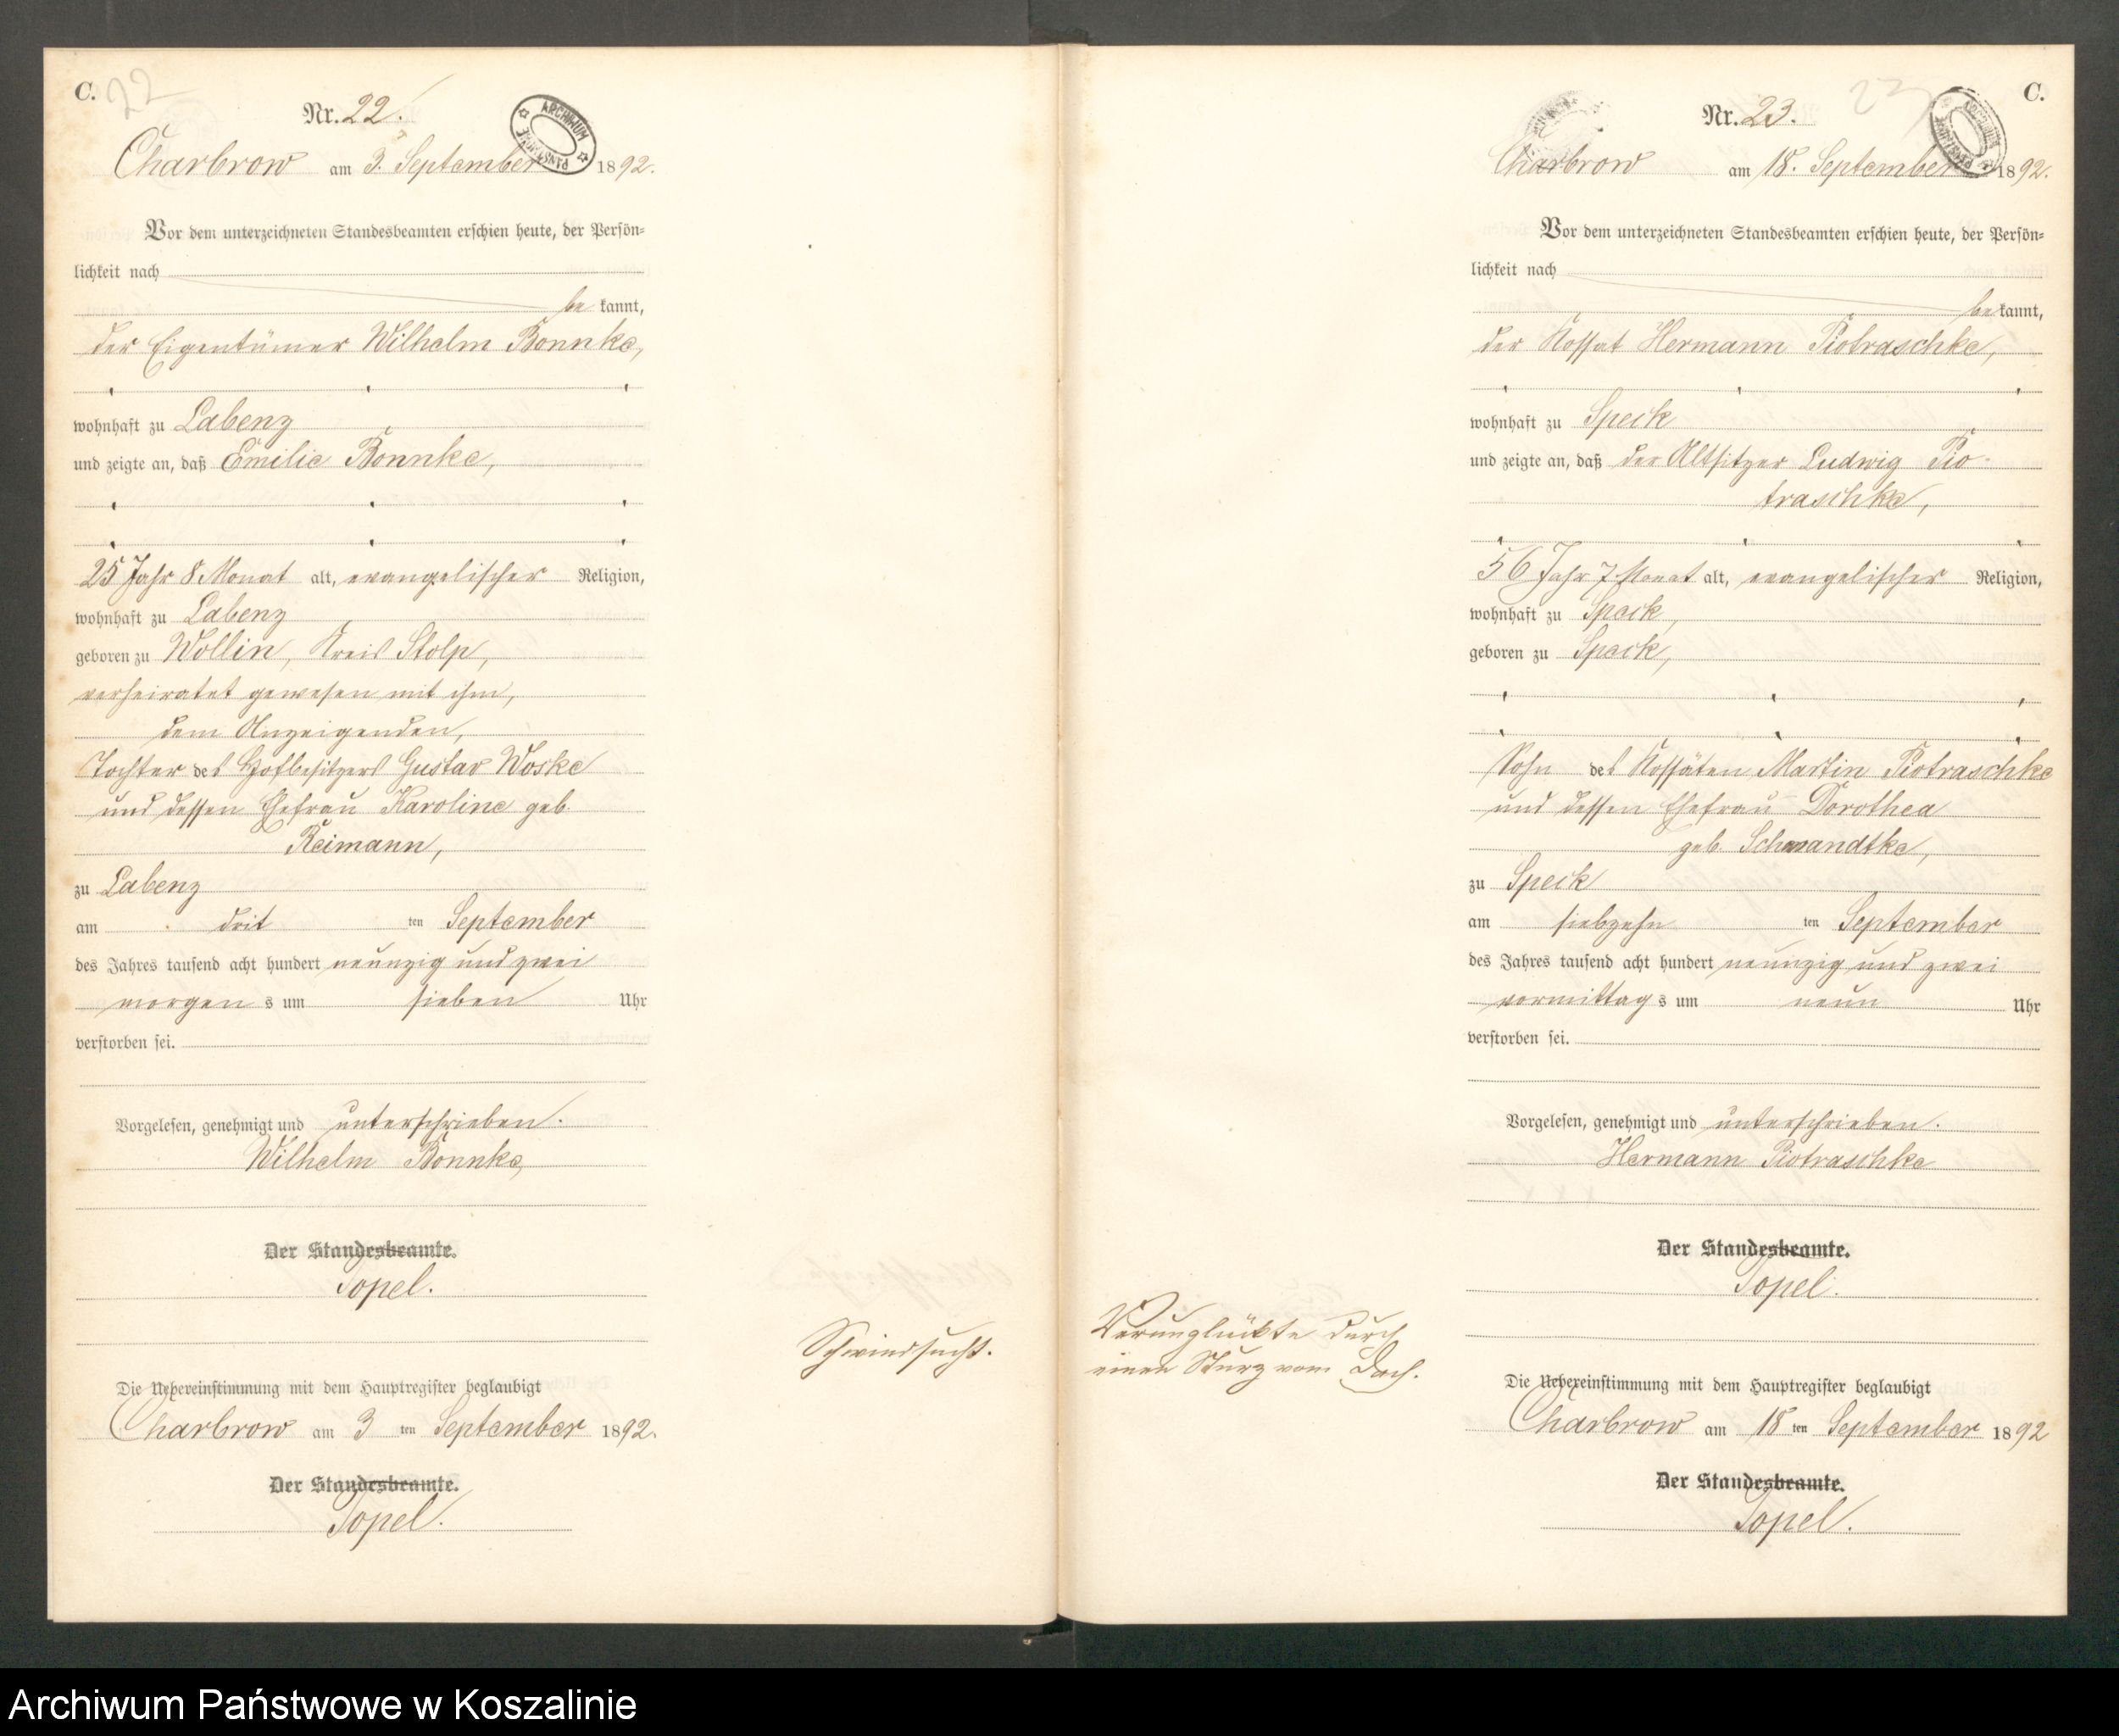 C.
22
Nr. 22.
ARCHIWUM PAŃSTWOWE
Charbrow am 3. September 1892.
Vor dem unterzeichneten Standesbeamten erschien heute, der Persön-
lichkeit nach
be kannt,
der Eigentümer Wilhelm Bonnke,
wohnhaft zu Labenz
und zeigte an, daß Emilie Bonnke,
25 Jahr 8 Monat alt, evangelischer Religion,
wohnhaft zu Labenz
geboren zu Wollin, Kreis Stolp,
verheiratet gewesen mit ihm,
dem Anzeigenden,
Tochter des Hofbesitzers Gustav Woske
und dessen Ehefrau Karoline geb.
Reimann,
zu Labenz
am drit ten September
des Jahres tausend acht hundert neunzig und zwei
morgen s um sieben Uhr
verstorben sei.
Vorgelesen, genehmigt und unterschrieben.
Wilhelm Bonnke
Der Standesbeamte.
Topel.
Schwindsucht.
Die Uebereinstimmung mit dem Hauptregister beglaubigt
Charbrow am 3 ten September 1892.
Der Standesbeamte.
Topel.
C.
23
Nr. 23.
ARCHIWUM PAŃSTWOWE
Charbrow am 18. September 1892.
Vor dem unterzeichneten Standesbeamten erschien heute, der Persön-
lichkeit nach
be kannt,
der Kossat Hermann Piotraschke,
wohnhaft zu Speck
und zeigte an, daß der Altsitzer Ludwig Pio-
traschke,
56 Jahr 7 Monat alt, evangelischer Religion,
wohnhaft zu Speck,
geboren zu Speck,
Sohn des Kossäten Martin Piotraschke
und dessen Ehefrau Dorothea
geb. Schwandtke,
zu Speck
am siebzehn ten September
des Jahres tausend acht hundert neunzig und zwei
vormittag s um neun Uhr
verstorben sei.
Vorgelesen, genehmigt und unterschrieben.
Hermann Piotraschke
Der Standesbeamte.
Topel.
Verunglückte durch
einen Sturz vom Dach.
Die Uebereinstimmung mit dem Hauptregister beglaubigt
Charbrow am 18 ten September 1892
Der Standesbeamte.
Topel.
Archiwum Państwowe w Koszalinie